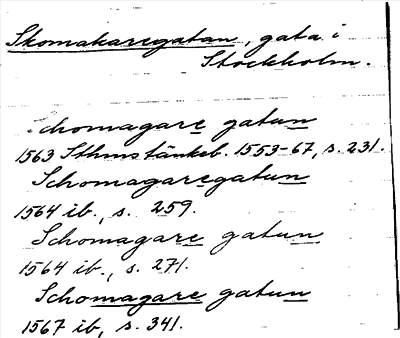 Skomakaregatan, gata i
Stockholm.
Schomagare gatun
1563 Sthmstänkeb. 1553-67, s. 231.
Schomagaregatun
1564 ib., s. 259.
Schomagare gatun
1564 ib., s. 271.
Schomagare gatun
1567 ib, s. 341.